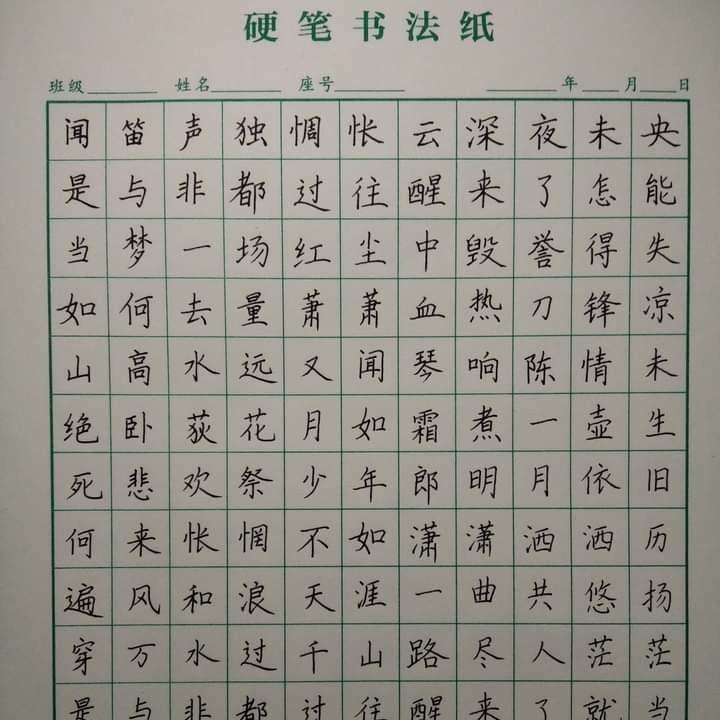 硬笔书法纸
班级 姓名 座号 年 月 日
闻笛声独惆怅云深夜未央
是与非都过往醒来了怎能
当梦一场红尘中毁誉得失
如何去量萧萧血热刀锋凉
山高水远又闻琴响陈情未
绝卧荻花月如霜煮一壶生
死悲欢祭少年郎明月依旧
何来怅惘不如潇潇洒洒历
遍风和浪天涯一曲共悠扬
穿万水过千山路尽人茫茫
是与非都过往醒来了就当